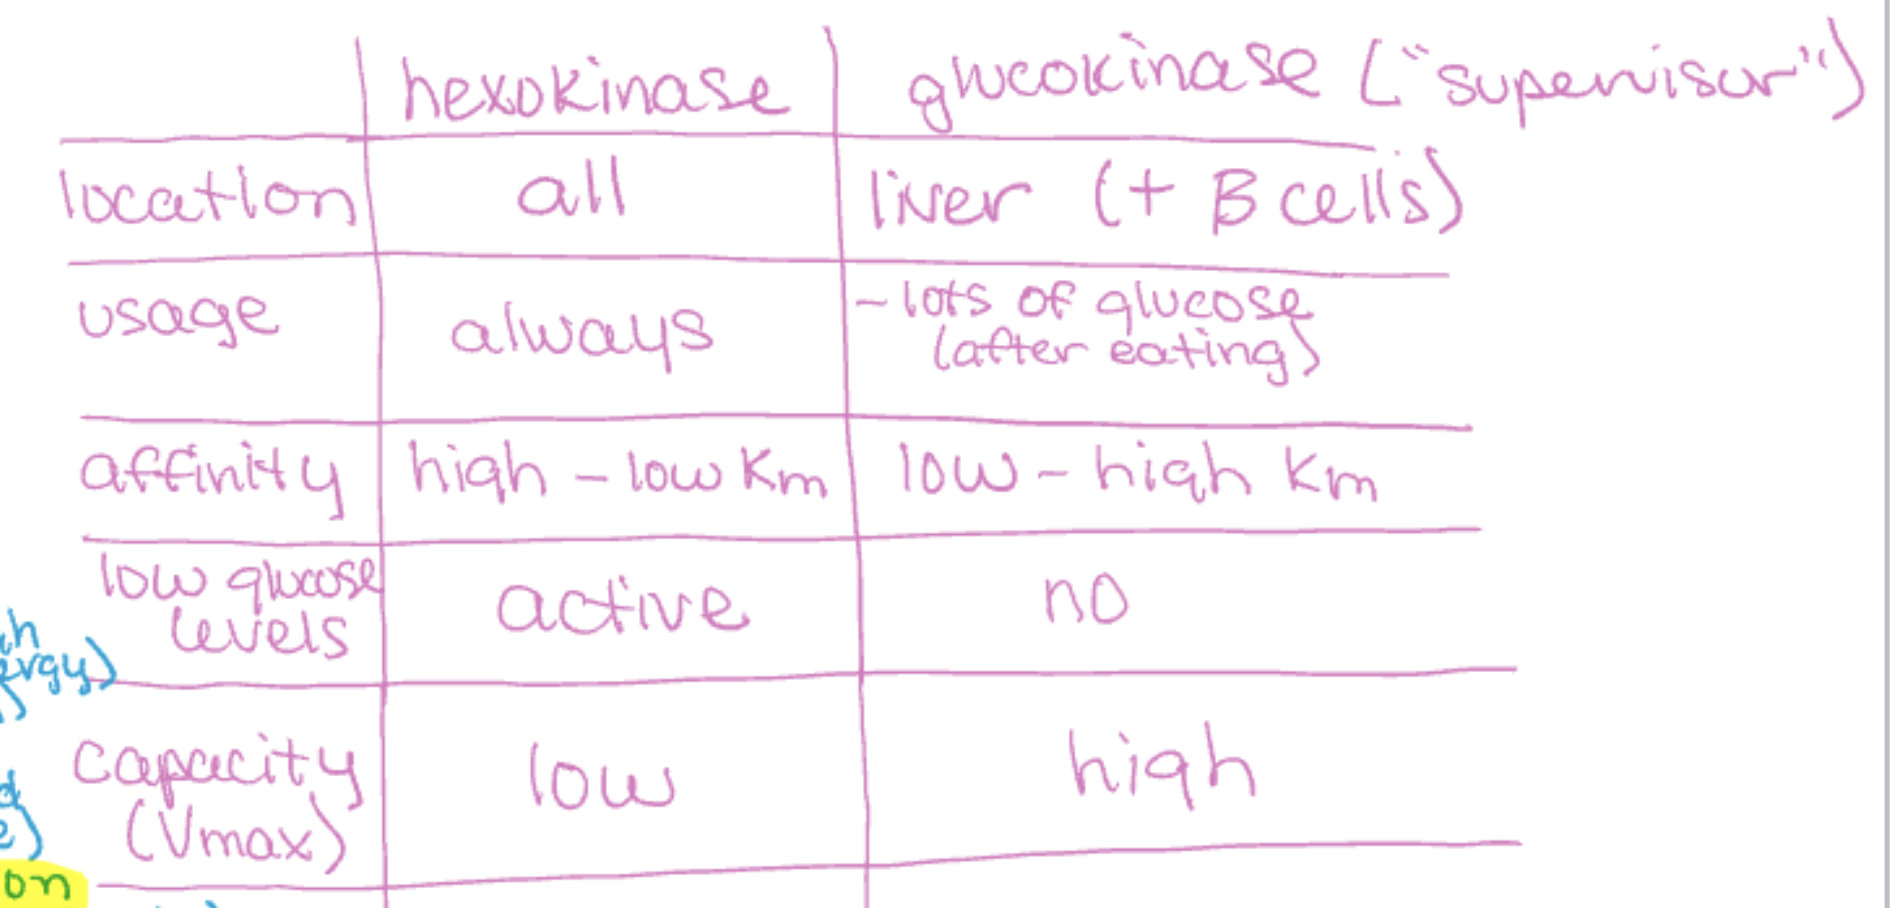 hexokinase glucokinase ("supervisor")
location all liver (+ B cells)
usage always - lots of glucose
(after eating)
affinity high - low Km low - high Km
low glucose
levels active no
capacity
(Vmax) low high
on